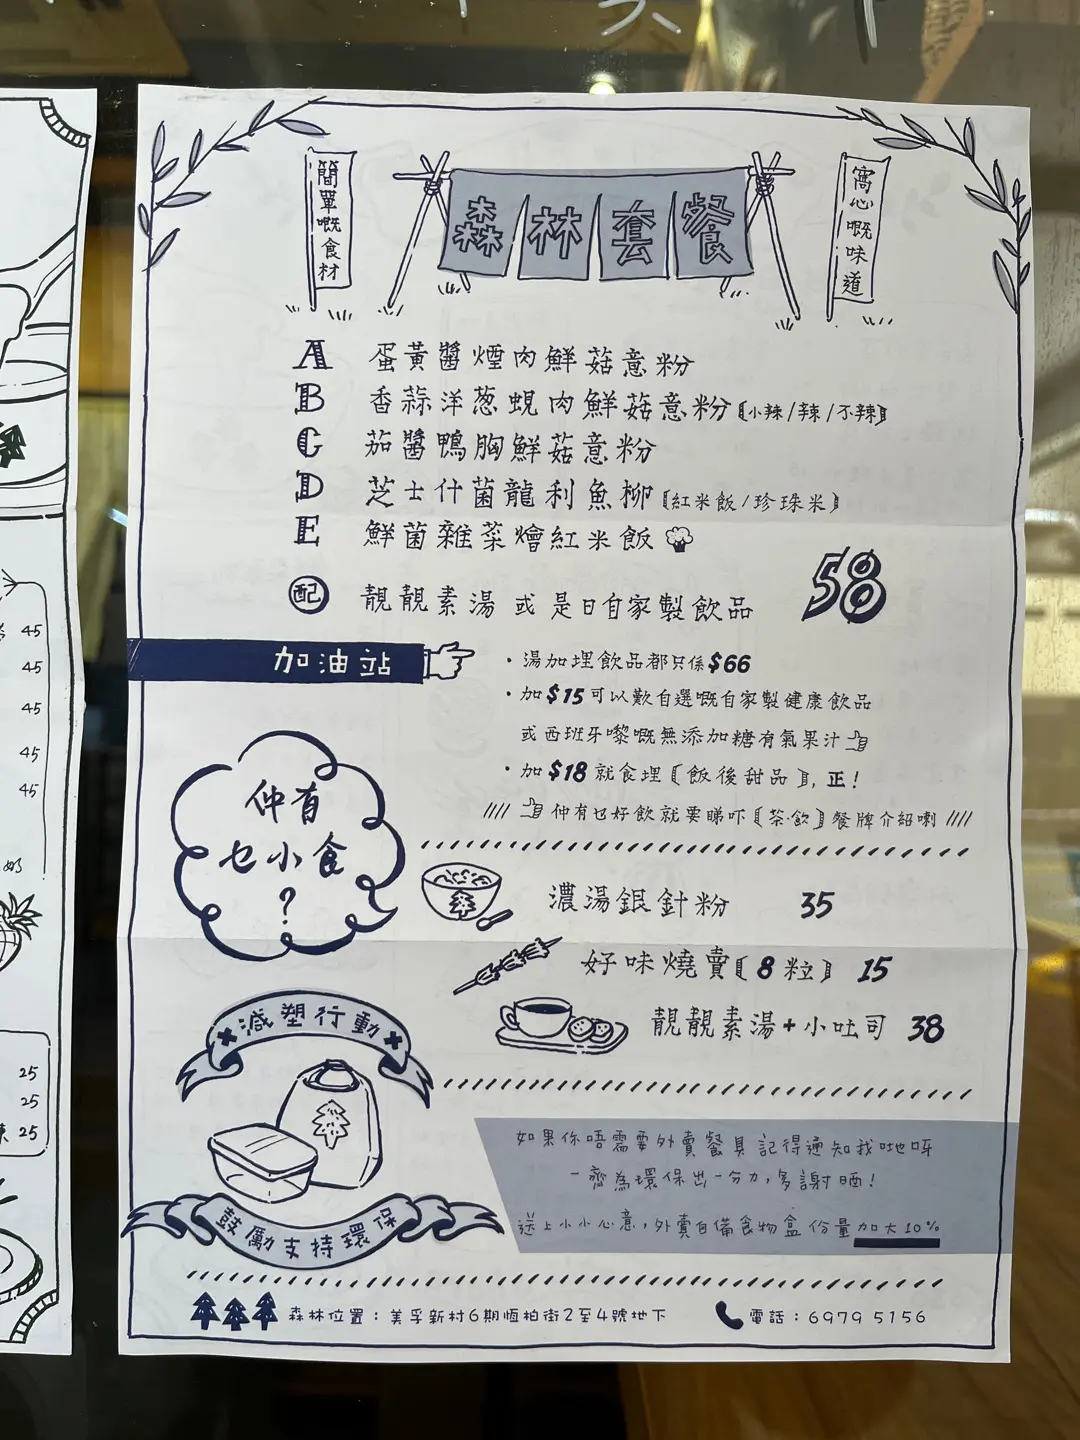 簡單嘅食材
森林套餐
窩心嘅味道
A 蛋黃醬煙肉鮮菇意粉
B 香蒜洋葱蜆肉鮮菇意粉〖小辣/辣/不辣〗
C 茄醬鴨胸鮮菇意粉
D 芝士什菌龍利魚柳〖紅米飯/珍珠米〗
E 鮮菌雜菜燴紅米飯
配 靚靚素湯 或 是日自家製飲品 58
加油站
・湯加埋飲品都只係$66
・加$15可以歎自選嘅自家製健康飲品
或西班牙嚟嘅無添加糖有氣果汁
・加$18就食埋〖飯後甜品〗,正!
//// 仲有乜好飲就要睇吓〖茶.飲〗餐牌介紹喇 ////
仲有
乜小食
?
濃湯銀針粉 35
好味燒賣〖8粒〗 15
靚靚素湯+小吐司 38
減塑行動
鼓勵支持環保
如果你唔需要外賣餐具記得通知我哋呀
一齊為環保出一分力,多謝晒!
送上小小心意,外賣自備食物盒份量加大10%
森林位置:美孚新村6期恆柏街2至4號地下
電話:6979 5156
45
45
45
45
45
奶
25
25
25